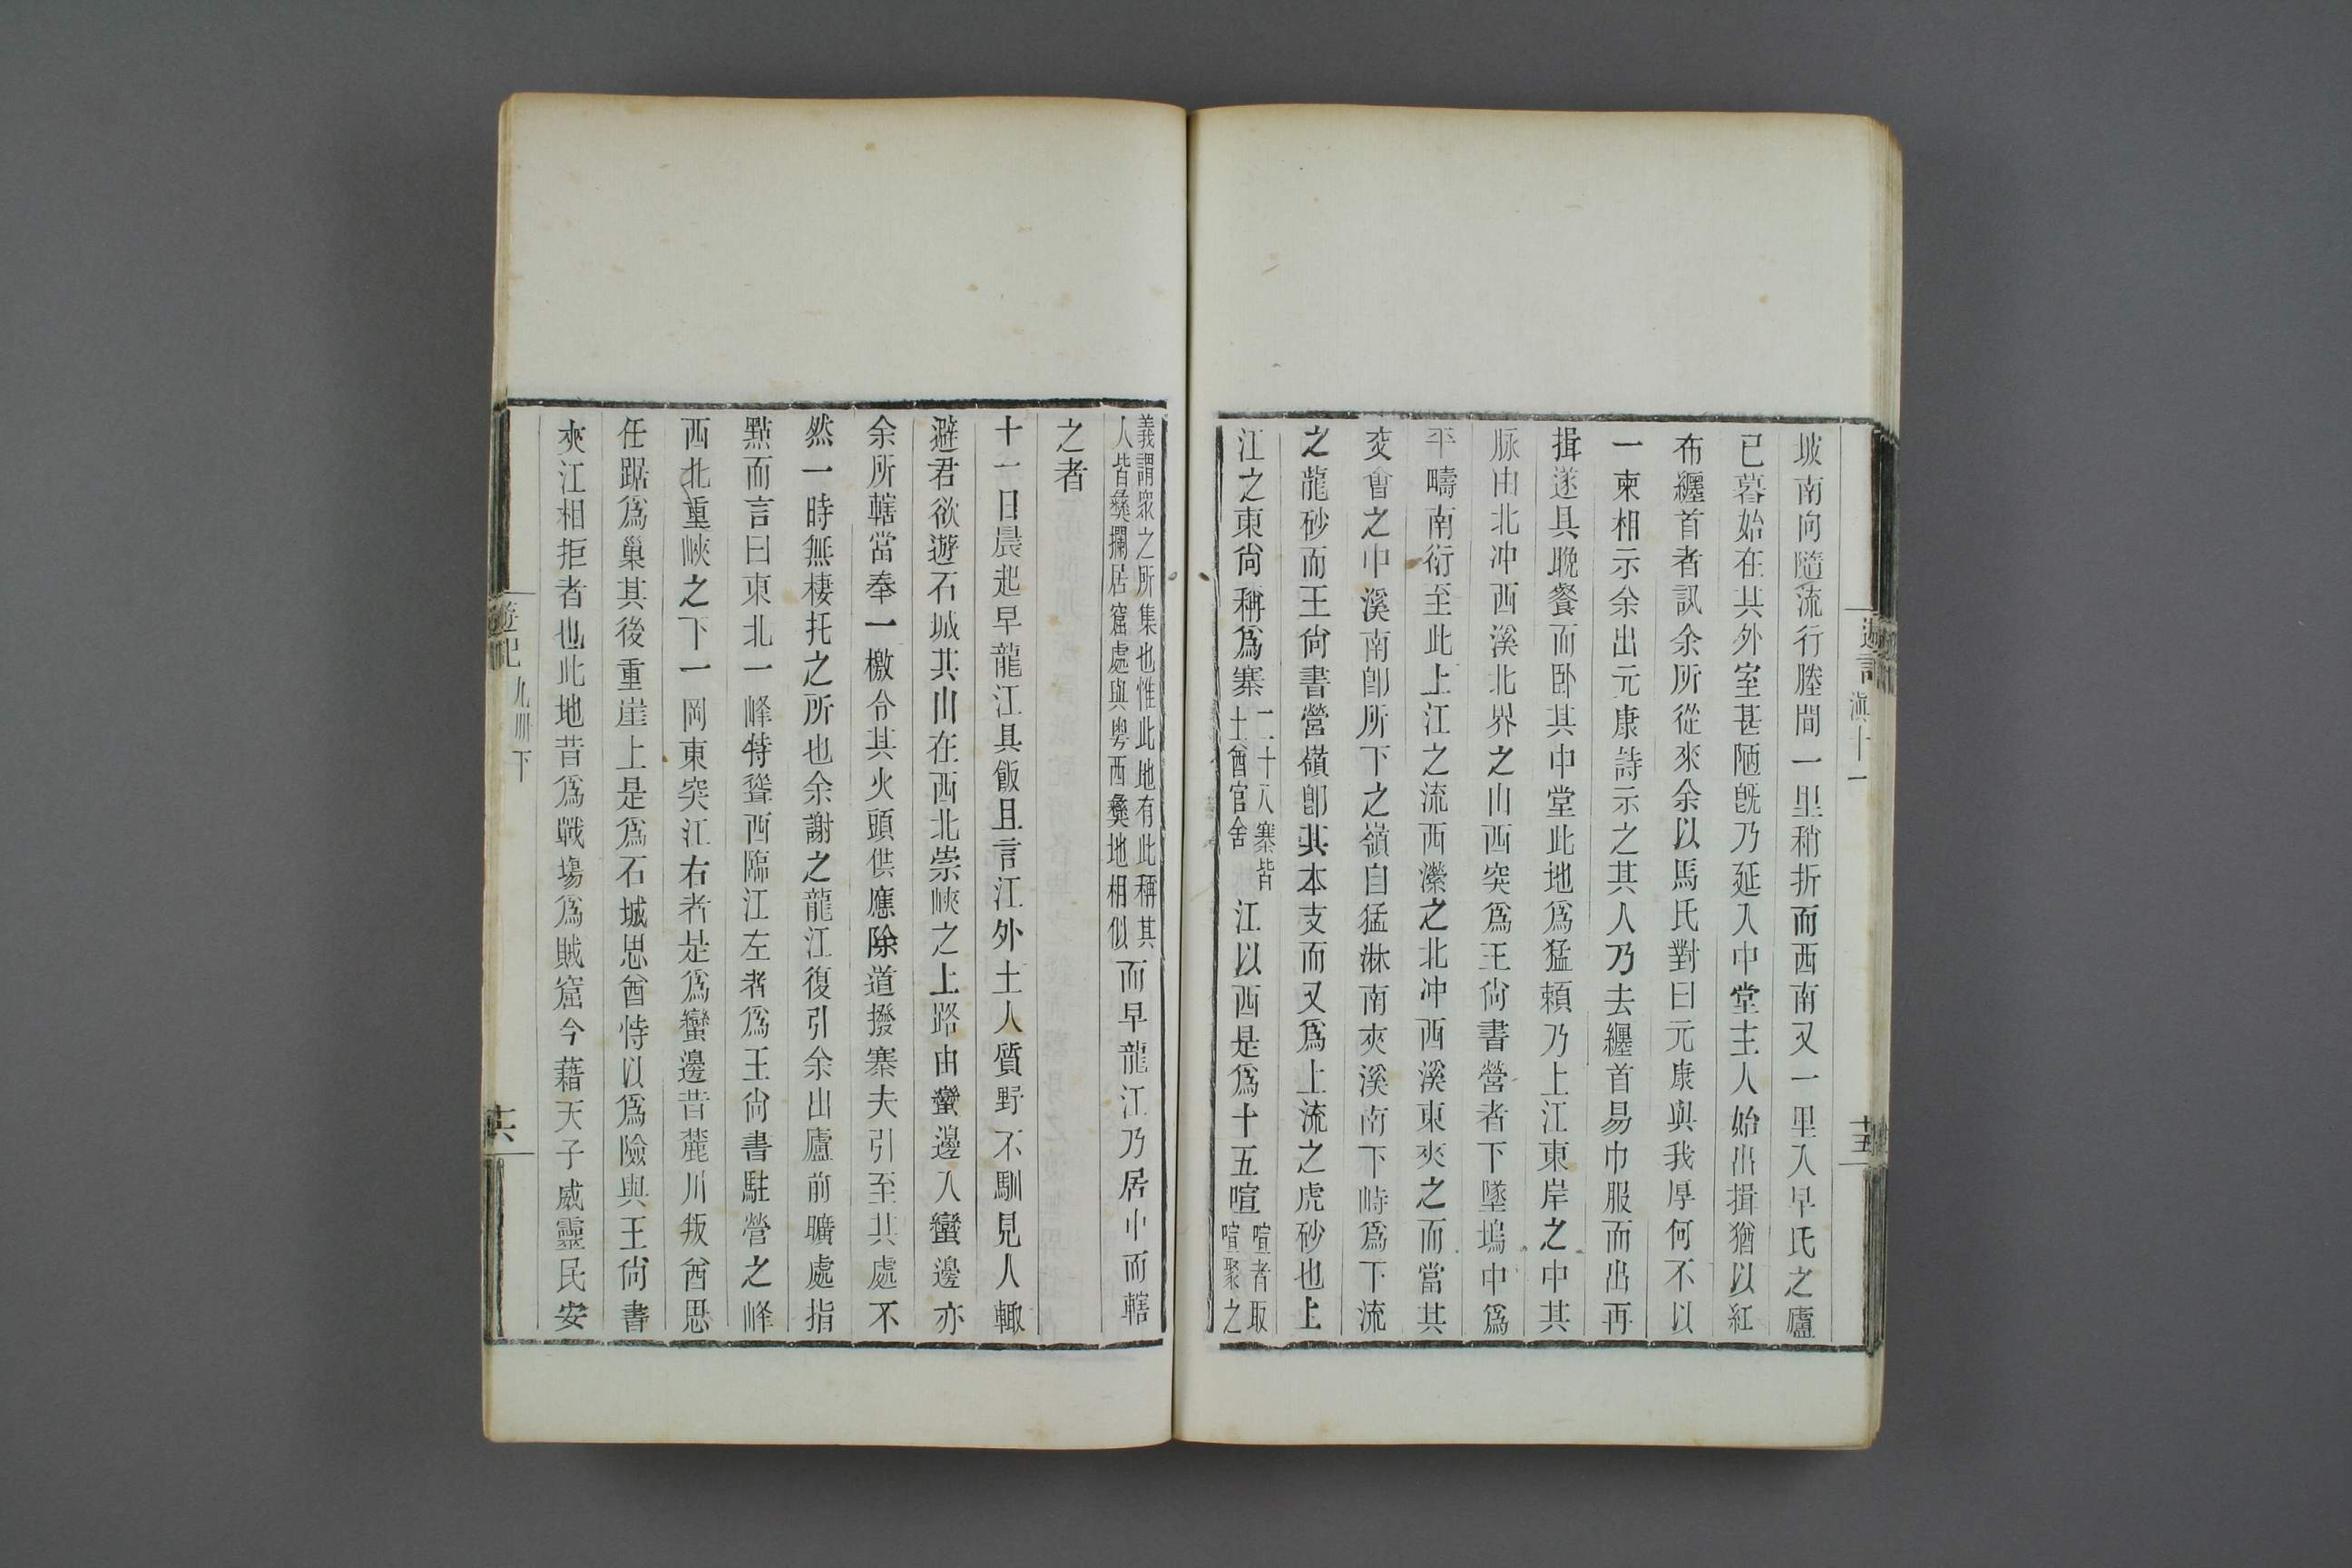 遊記
滇十一
十五
坡南向隨流行塍間一里稍折而西南又一里入早氏之廬
已暮始在其外室甚陋旣乃延入中堂主人始出揖猶以紅
布纏首者訊余所從來余以馬氏對曰元康與我厚何不以
一柬相示余出元康詩示之其人乃去纏首易巾服而出再
揖遂具晚餐而卧其中堂此地爲猛賴乃上江東岸之中其
脉由北冲西溪北界之山西突爲王尙書營者下墜塢中爲
平疇南衍至此上江之流西瀠之北冲西溪東夾之而當其
交會之中溪南卽所下之嶺自猛淋南夾溪南下峙爲下流
之龍砂而王尙書營嶺卽其本支而又爲上流之虎砂也上
江之東尙稱爲寨二十八寨皆土酋官舍江以西是爲十五喧喧者取喧聚之
義謂衆之所集也惟此地有此稱其人皆彝攔居窟處與粤西彝地相似而早龍江乃居中而轄
之者
十一日晨起早龍江具飯且言江外土人質野不馴見人輙
避君欲遊石城其山在西北崇峽之上路由蠻邊入蠻邊亦
余所轄當奉一檄令其火頭供應除道撥寨夫引至其處不
然一時無棲托之所也余謝之龍江復引余出廬前曠處指
點而言曰東北一峰特聳西臨江左者爲王尙書駐營之峰
西北重峽之下一岡東突江右者是爲蠻邊昔麓川叛酋思
任踞爲巢其後重崖上是爲石城思酋恃以爲險與王尙書
夾江相拒者也此地昔爲戰塲爲賊窟今藉天子威靈民安
遊記
九冊下
十六